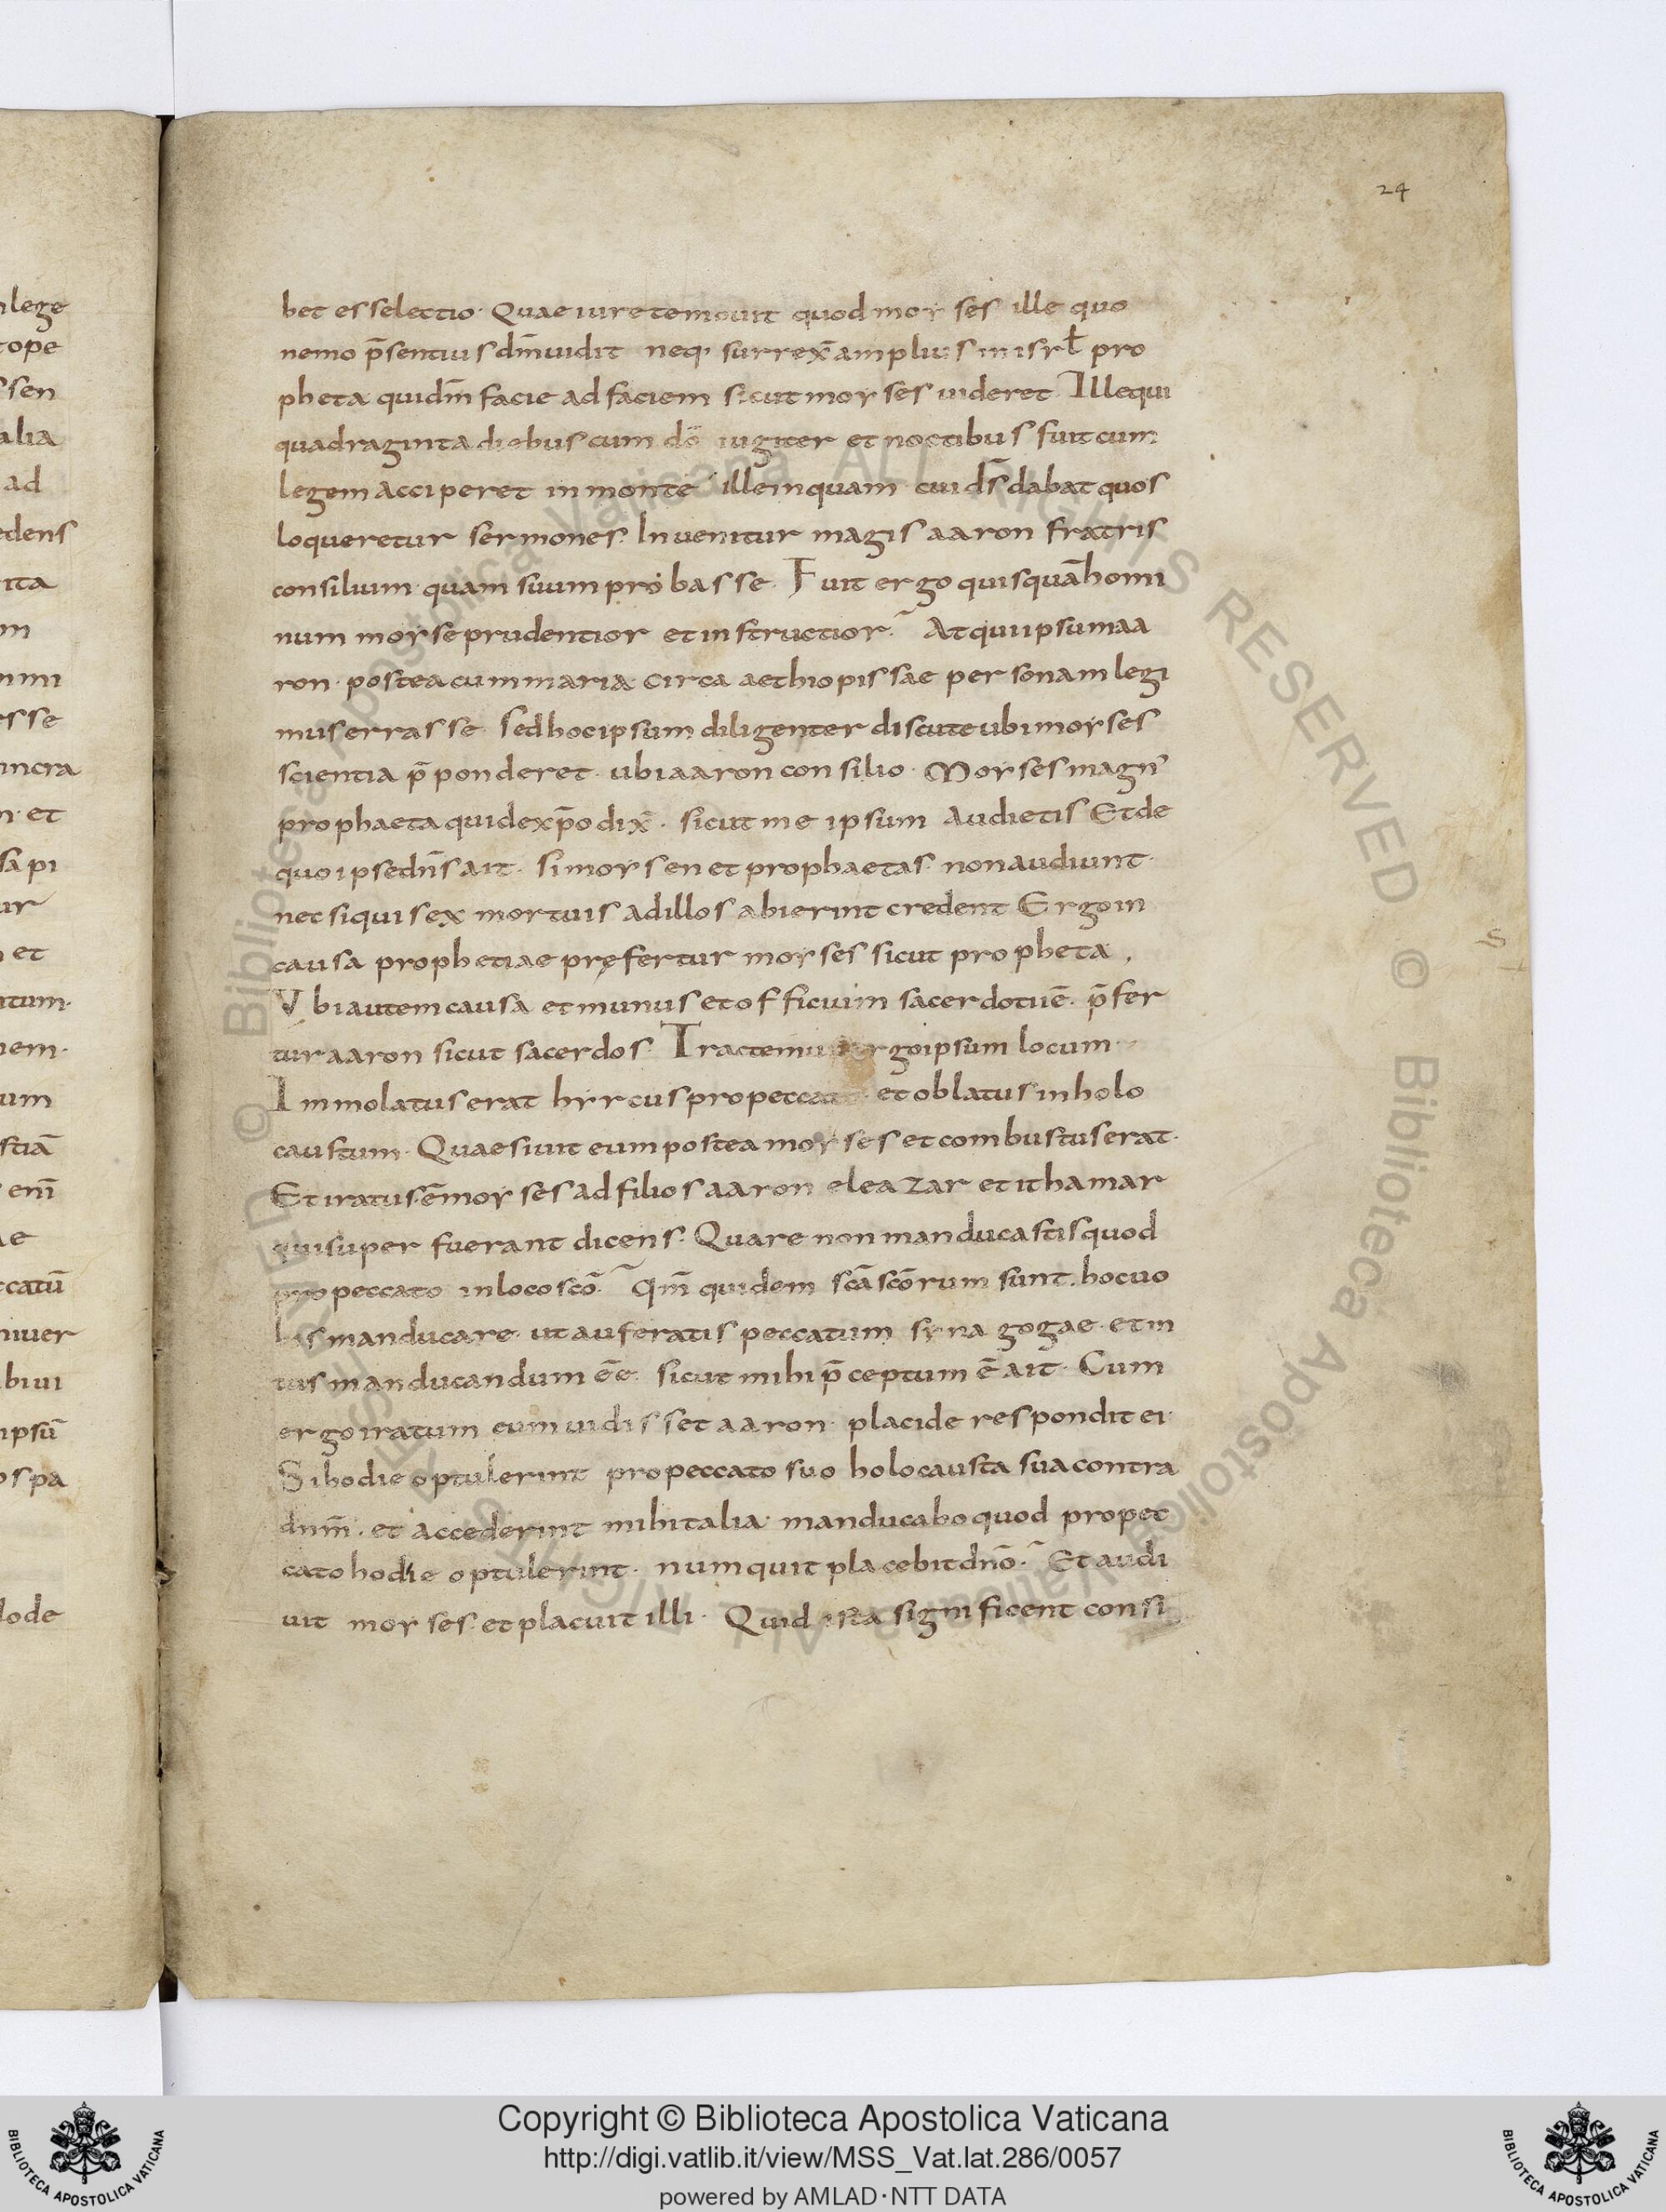 24
bet esse lectio. Quae iure te mouit quod moyses ille quo
nemo p̄sentius dn̄m uidit neq; surrex̄ amplius in isrł pro
pheta qui dn̄m facie ad faciem sicut moyses uideret. Ille qui
quadraginta diebus cum dō iugiter et noctibus fuit cum
legem acciperet in monte ille inquam cui ds̄ dabat quos
loqueretur sermones. Inuenitur magis aaron fratris
consilium. quam suum probasse. Fuit ergo quisquā homi
num moyse prudentior et instructior. At qui ipsum aa
ron. postea cum maria. circa aethiopissae personam legi
mus errasse. Sed hoc ipsum diligenter discute ubi moyses
scientia p̄ponderet. ubi aaron consilio. Moyses magn'
prophaeta qui de xp̄o dix̄. sicut me ipsum audietis Et de
quo ipse dn̄s ait. si moysen et prophaetas. non audiunt.
nec si quis ex mortuis ad illos abierint credent Ergo in
causa prophetiae pręfertur moyses sicut propheta,
Vbi autem causa et munus et officiuim sacerdotii ē. p̄fer
tur aaron sicut sacerdos. Tractemus ergo ipsum locum.
Immolatus erat hyrcus pro peccato. et oblatus in holo
caustum. Quaesiuit eum postea moyses et combustus erat.
Et iratus ē moyses ad filios aaron eleazar et ithamar
qui super fuerant dicens. Quare non manducastis quod
pro peccato in loco scō. Qm̄ quidem scā scōrum sunt. hoc uo
bis manducare. ut auferatis peccatum synagogae. et in
tus manducandum ēē. sicut mihi p̄ceptum ē ait. Cum
ergo iratum eum uidisset aaron. placide respondit ei.
Si hodie optulerint pro peccato suo holocausta sua contra
dnm̄. et accederint mihi talia. manducabo quod pro pec
cato hodie optulerint. numquit placebit dnō. Et audi
uit moyses. et placuit illi. Quid ista significent consi
S
n lege
tope
sen
alia
ad
edens
ita
m
mmi
esse
incra
n. et
sapi
ur
et
ntum.
nem.
um
stiā
enī
ae
ccatū
niuer
biui
ipsū
os pa
lode
© Biblioteca Apostolica Vaticana ALL RIGHTS RESERVED © Biblioteca Apostolica Vaticana ALL RIGHTS RESERVED
Copyright © Biblioteca Apostolica Vaticana
http://digi.vatlib.it/view/MSS_Vat.lat.286/0057
powered by AMLAD·NTT DATA
BIBLIOTECA APOSTOLICA VATICANA
BIBLIOTECA APOSTOLICA VATICANA